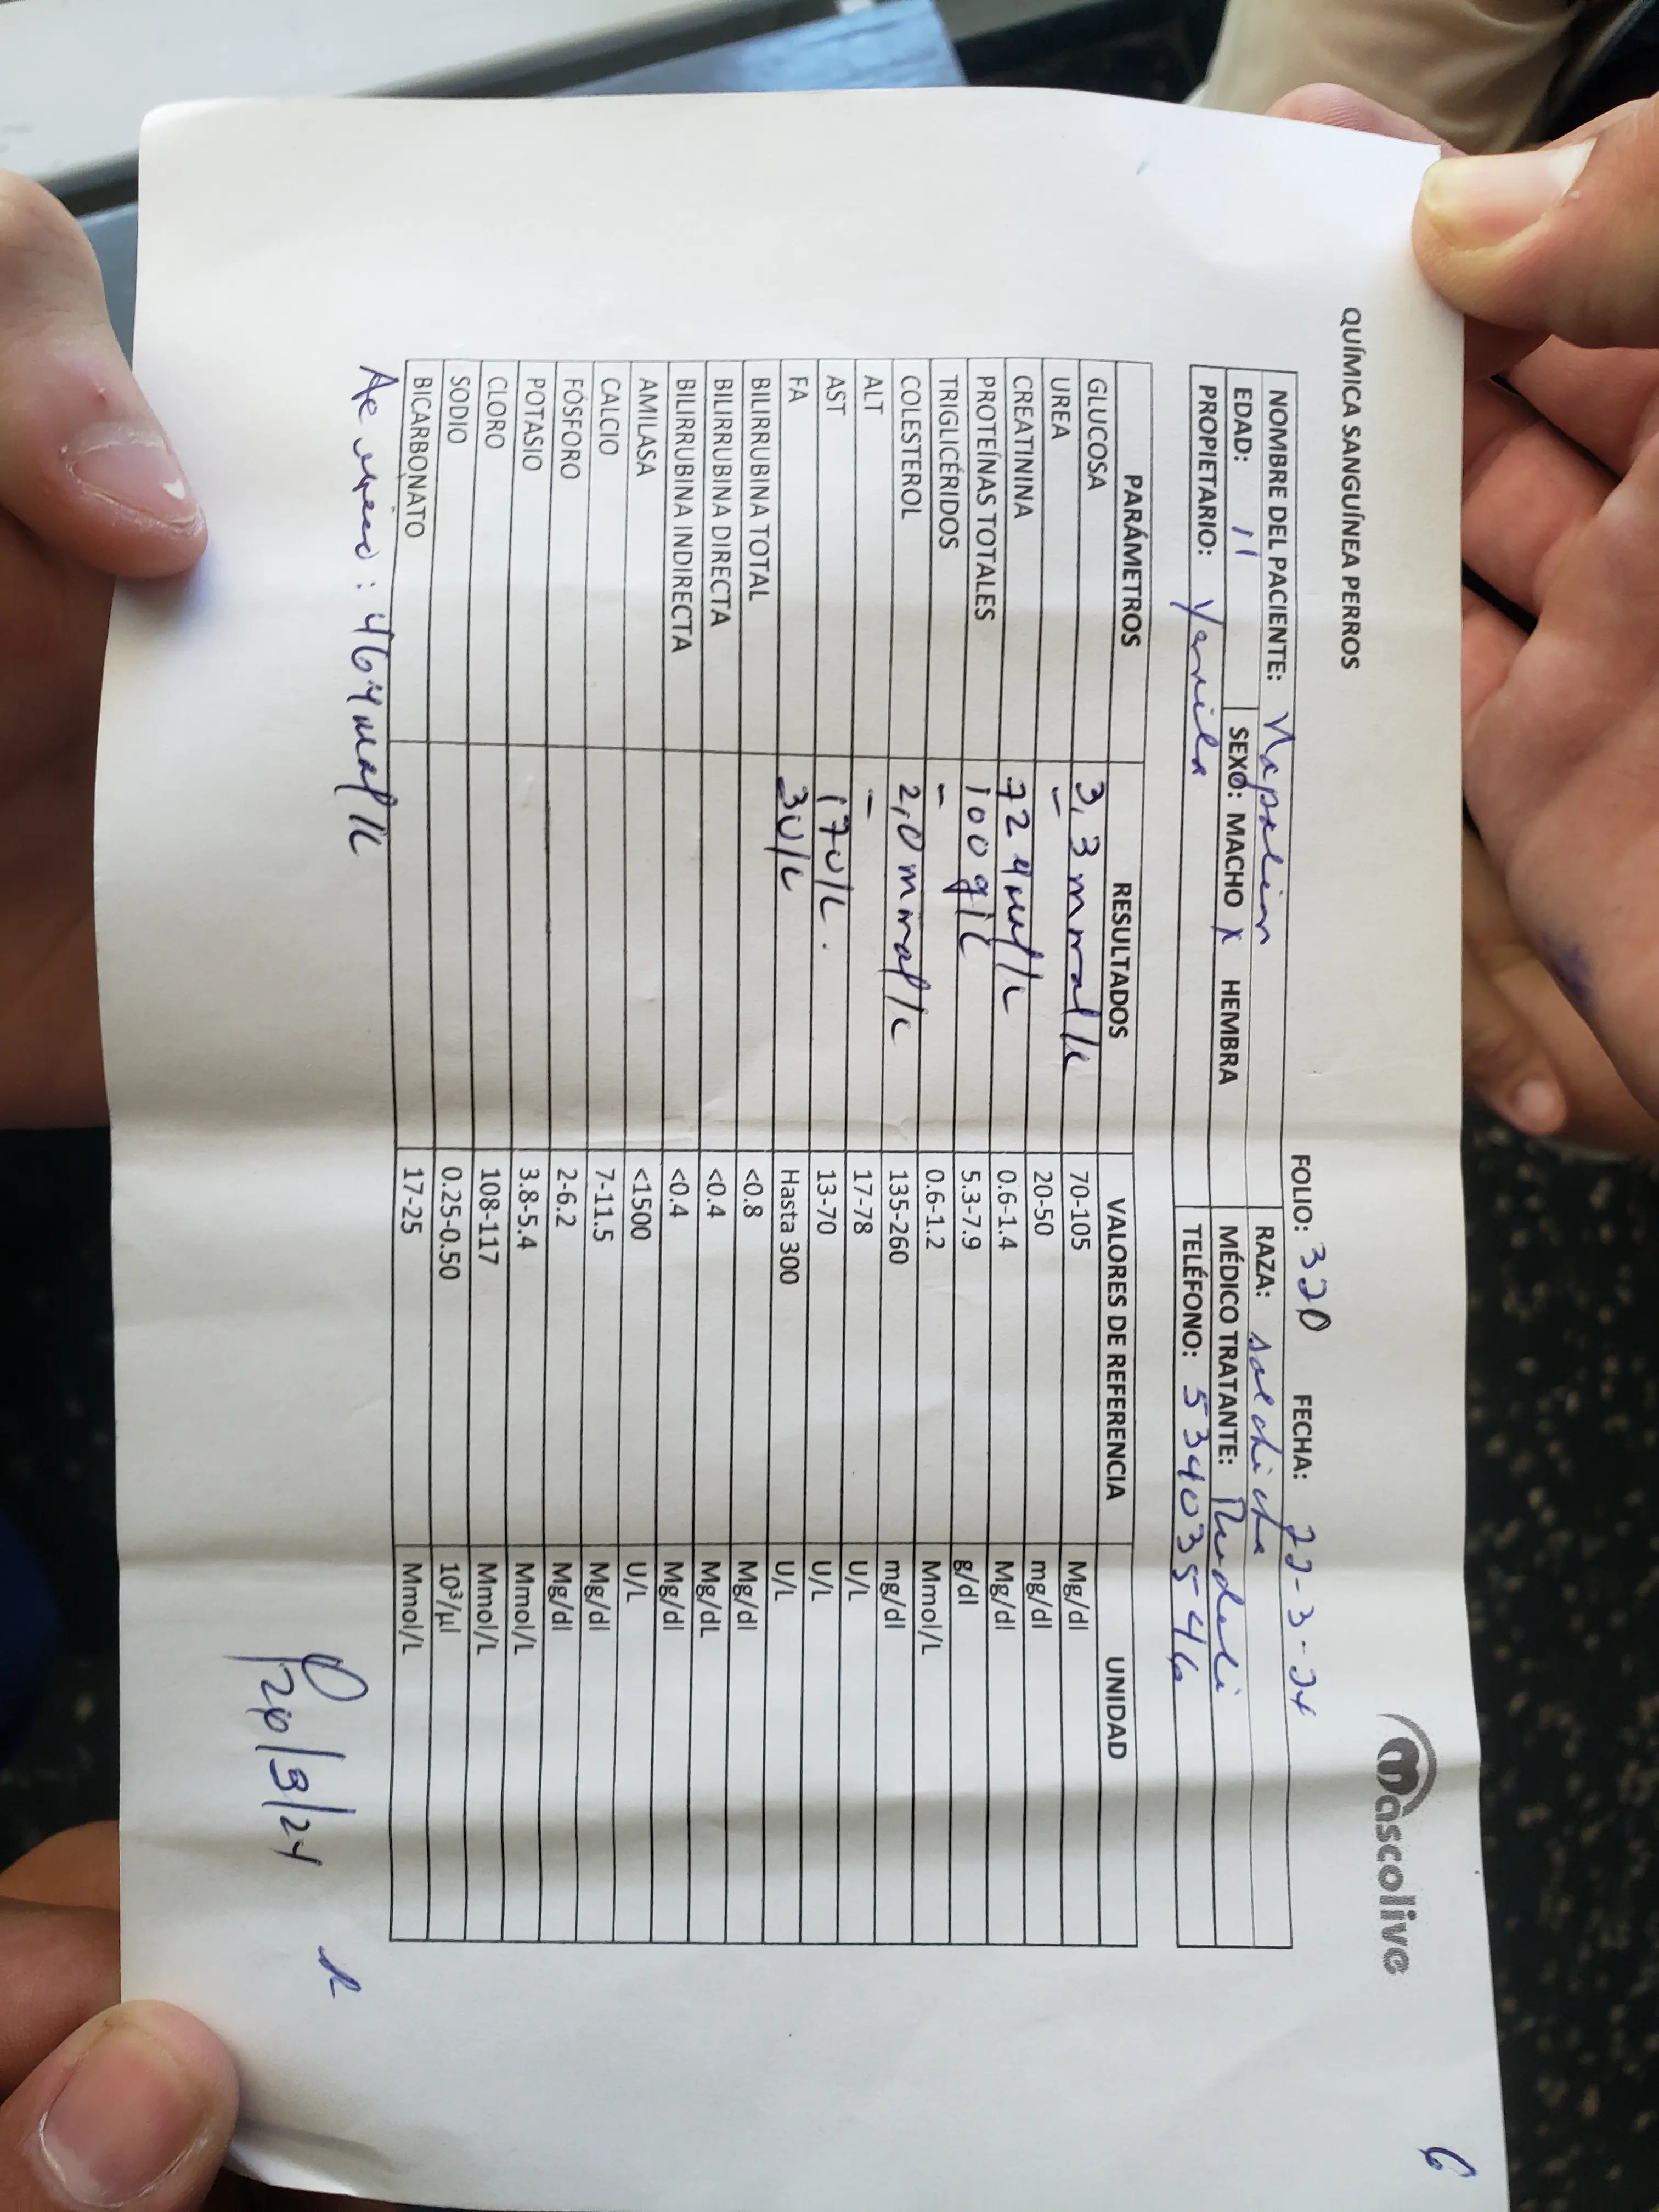 6
mascolive
QUÍMICA SANGUÍNEA PERROS
FOLIO: 320 FECHA: 22-3-24
NOMBRE DEL PACIENTE: Napoleon RAZA: salchicha
EDAD: 11 SEXO: MACHO X HEMBRA MÉDICO TRATANTE:
PROPIETARIO: TELÉFONO: 53403546
PARÁMETROS RESULTADOS VALORES DE REFERENCIA UNIDAD
GLUCOSA 3,3 mmol/L 70-105 Mg/dl
UREA - 20-50 mg/dl
CREATININA 0.6-1.4 Mg/dl
PROTEÍNAS TOTALES 100 g/L 5.3-7.9 g/dl
TRIGLICÉRIDOS - 0.6-1.2 Mmol/L
COLESTEROL 2,0 mmol/L 135-260 mg/dl
ALT - 17-78 U/L
AST 17U/L. 13-70 U/L
FA 3U/L Hasta 300 U/L
BILIRRUBINA TOTAL <0.8 Mg/dl
BILIRRUBINA DIRECTA <0.4 Mg/dL
BILIRRUBINA INDIRECTA <0.4 Mg/dl
AMILASA <1500 U/L
CALCIO 7-11.5 Mg/dl
FÓSFORO 2-6.2 Mg/dl
POTASIO 3.8-5.4 Mmol/L
CLORO 108-117 Mmol/L
SODIO 0.25-0.50 10³/µl
BICARBONATO 17-25 Mmol/L
Ac